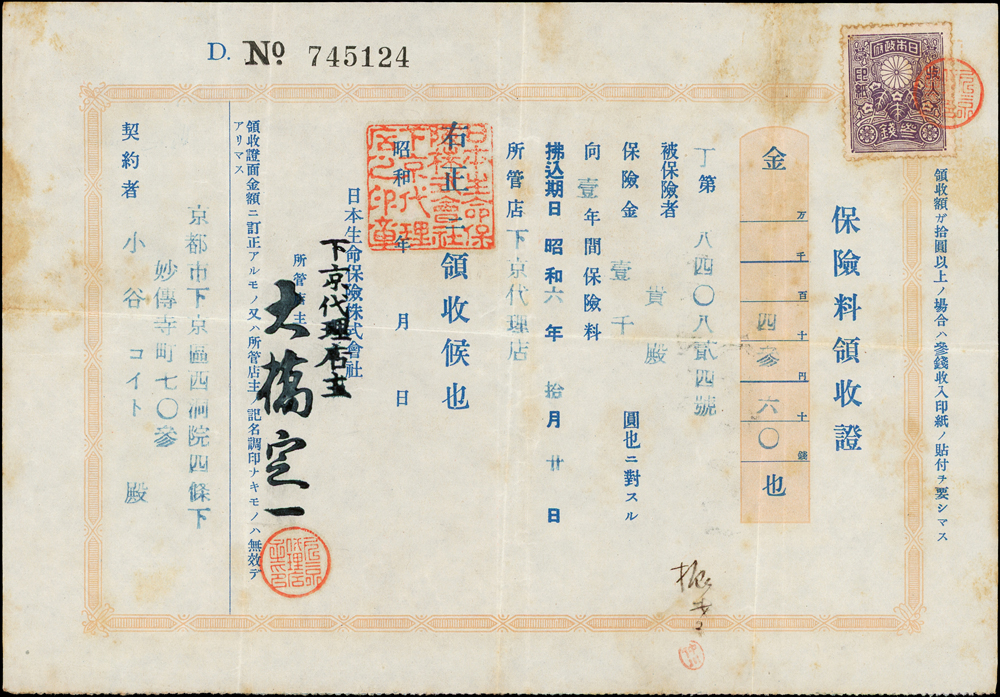 D. № 745124
日本政府
収入
印紙
參錢
領收額ガ拾圓以上ノ場合ハ參錢收入印紙ノ貼付チ要シマス
保險料領收證
金 万 千 百 四十 參円 六十 〇錢 也
丁第 八四〇八貳四號
被保險者 貴殿
保險金 壹千 圓也ニ對スル
向壹年間保險料
拂込期日 昭和六年 拾月廿日
所管店 下京代理店
右正ニ領收候也
昭和 年 月 日
日本生命保險株式會社下京代理店之印章
日本生命保險株式會社
下京代理店主
所管店主
大橋定一
領收證面金額ニ訂正アルモノ又ハ所管店主ノ記名調印ナキモノハ無效デ
アリマス
京都市下京區西洞院四條下
妙傳寺町七〇參
契約者 小谷コイト殿